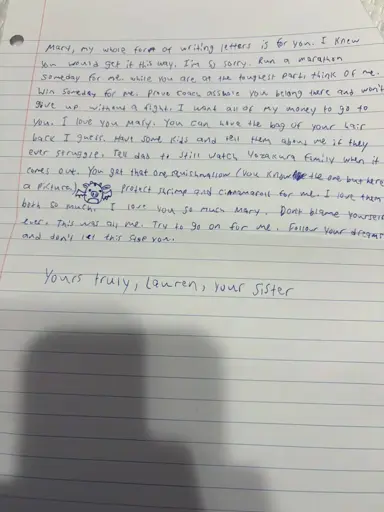 Mary, my whole form of writing letters is for you. I knew
you would get it this way. I'm so sorry. Run a marathon
someday for me while you are at the toughest part, think of me.
Win someday for me. prove coach asshole you belong there and won't
give up without a fight. I want all of my money to go to
you. I love you Mary. You can have the bag of your hair
back I guess. Have some kids and tell them about me if they
ever struggle. Tell dad to still watch Yozakura family when it
comes out. You get that one squishmallow (you know the one but here's
a picture) protect shrimp and cinnamaroll for me. I love them
both so much. I love you so much Mary. Dont blame yourself
ever. This was all me. Try to go on for me. Follow your dreams
and don't let this stop you.
Yours truly, Lauren, your sister